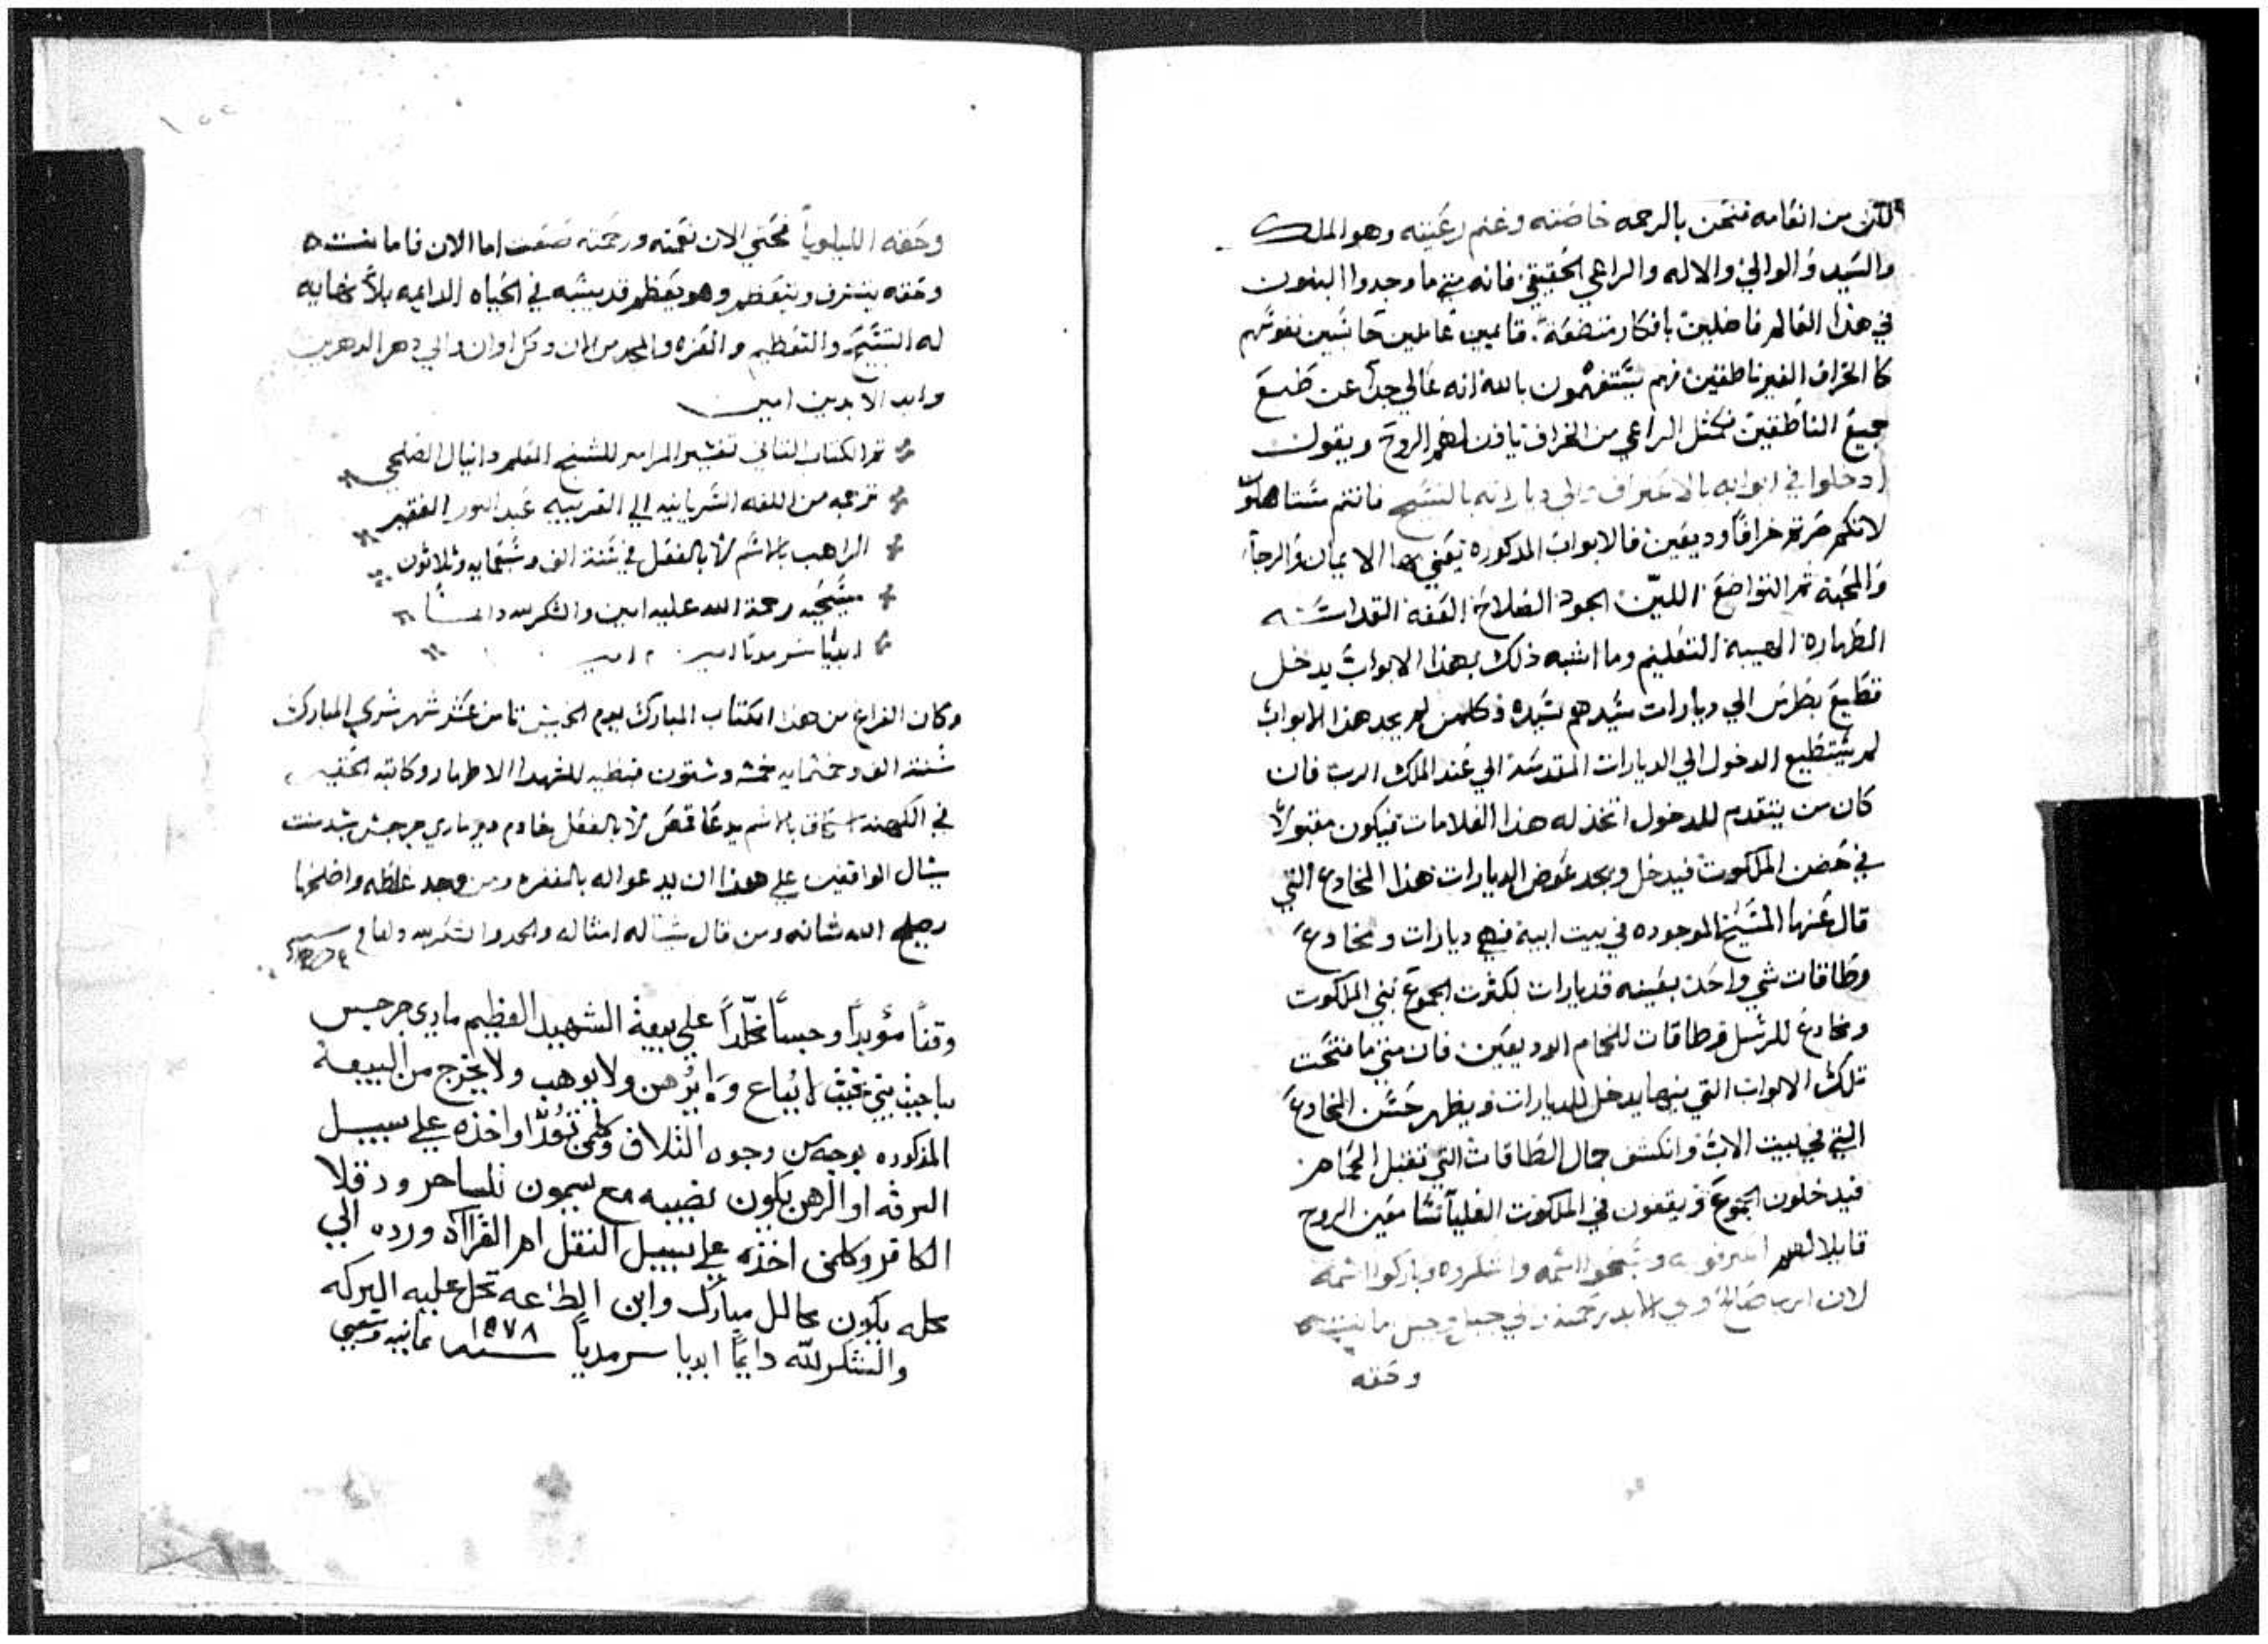 لكن من انعامه فنحن بالرحمه خاصته وغنم رعيته وهو الملك
والسيد والوالي والاله والراعي الحقيقي فانه متي ما وجدوا البنون
في هذا العالم فاضلين بافكار متضعة قايمين عاملين حاسبين نفوسهم
كالخراف الغير ناطقين فهم يستفهمون بالله انه عالي جدا عن طبع
جميع الناطقين فكمثل الراعي من الخراف ياذن لهم الروح ويقول
ادخلوا في ابوابه بالاعتراف والي دياراته بالتسبيح فانتم تستاهلون
لانكم صرتم خرافا وديعين فالابواب المذكوره يعني بها الايمان والرجا
والمحبة ثم التواضع اللين الجود الصلاح العفة القداسه
الطهارة الهيبة التعليم وما اشبه ذلك بهذا الابواب يدخل
قطيع بطرس الي ديارات سيدهم سيده فكلمن لم يجد هذا الابواب
لم يستطيع الدخول الي الديارات المقدسة الي عند الملك الرب فان
كان من يتقدم للدخول اتخذ له هذا العلامات فيكون مقبولا
في حضن الملكوت فيدخل ويجد عوض الديارات هذا المخادع التي
قال عنها المسيح الموجوده في بيت ابيه فهي ديارات ومخادع
وطاقات شي واحد بعينه فديارات لكثرت الجموع بني الملكوت
ومخادع للرسل وطاقات للحمام الوديعين فان متي ما فتحت
تلك الابواب التي بها يدخل للديارات ويظهر حسن المخادع
التي في بيت الاب وانكشف جمال الطاقات التي تقبل الحمام
فيدخلون الجموع ويقفون في الملكوت العليا سامعين الروح
قايلا لهم اعترفو له وسبحوا اسمه واشكروه وباركوا اسمه
لان الرب صالح والي الابد رحمته والي جيل وجيل امانته
وحقه
وحقه الليلويا فحتي الان نعمته ورحمته اما الان فامانته
وحقه يتشرف ويتعظم وهو يعظم قديسيه في الحياه الدايمه بلا نهايه
له التسبيح والتعظيم والعزه والمجد من الان وكل اوان والي دهر الدهرين
وابد الابدين امين
تم الكتاب الثاني تفسير المزامير للشيخ المعلم دانيال الصلحي
ترجمه من اللغه السريانيه الي العربيه عبد النور الفقير
الراهب بالاسم لا بالفعل في سنة الف وسبعمايه وثلاثون
مسيحيه رحمة الله عليه امين والشكر لله دايما
ابديا سرمديا امين امين
وكان الفراغ من هذا الكتاب المبارك يوم الخميس ثامن عشر شهر شهر المبارك
سنة الف وخمسمايه خمسه وستون قبطيه للشهدا الاطهار وكاتبه الحقير
في الكهنه اسحاق بالاسم يدعا قمص لا بالفعل خادم دير ماري جرجس
يسال الواقفين علي هذا ان يدعو له بالمغفره ومن وجد غلطه واصلحها
يصلح الله شانه ومن قال شيا له امثاله والحمد والشكر لله
وقفاً مؤبداً وحبساً مخلّداً علي بيعة الشهيد العظيم ماري جرجس
لا يباع ولا يرهن ولا يوهب ولا يخرج من البيعة
المذكوره بوجه من وجوه التلاف وكلمن تعدّا واخذه علي سبيل
السرقه او الرهن يكون نصيبه مع سيمون الساحر ودقلا
الكافر وكلمن اخذه علي سبيل النقل ام القراآه ورده الي
محله يكون محالل مبارك وابن الطاعه تحل عليه البركه
والشكر لله دايماً ابديا سرمدياً سنة ١٥٧٨ ثمانيه وسبعين